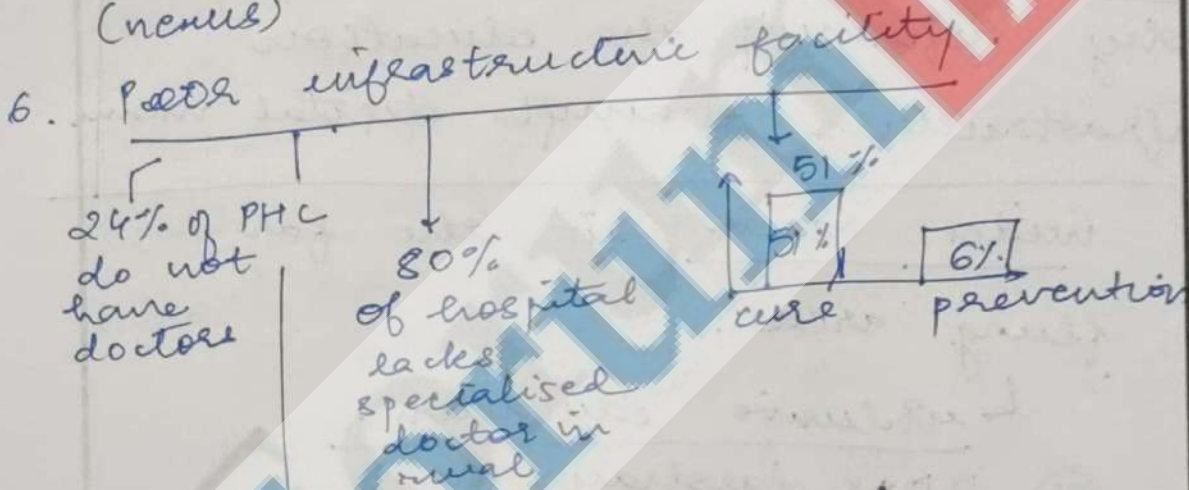 (nexus)
6. Poor infrastructure facility.
24% of PHC
do not
have
doctors
80%
of hospital
lacks
specialised
doctor in
rural
51%
51%
cure
6%
prevention
orum